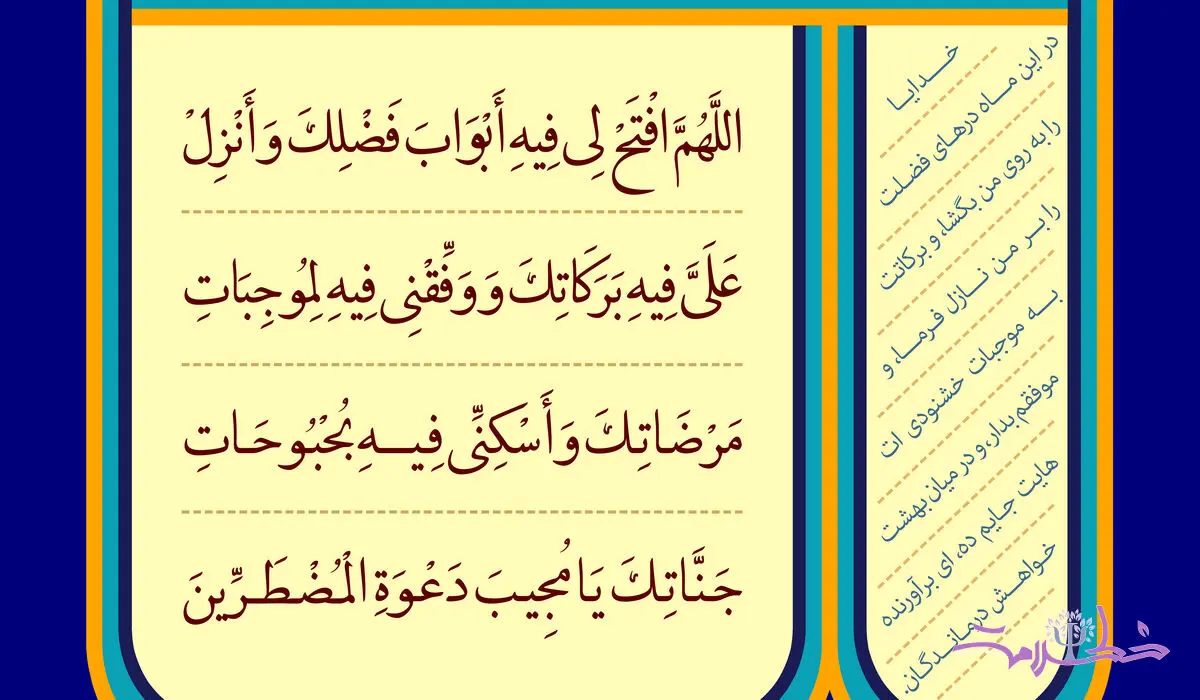 اللَّهُمَّ افْتَحْ لِی فِیهِ أَبْوَابَ فَضْلِكَ وَ أَنْزِلْ
عَلَیَّ فِیهِ بَرَكَاتِكَ وَ وَفِّقْنِی فِیهِ لِمُوجِبَاتِ
مَرْضَاتِكَ وَ أَسْكِنِّی فِیـــهِ بُحْبُوحَـاتِ
جَنَّاتِكَ یَا مُجِیبَ دَعْوَةِ الْمُضْطَـرِّینَ
خـــدایـا
در این مـــاه درهـای فضـلت
را به روی من بگشا، و برکاتت
را بـــر مـن نـــازل فـرمـــا، و
بـــه موجبات خشنودی ات
موفقم بدار، و در میان بهشت
هایت جـایم ده، ای برآورنده
خـواهـش درمـانـدگـان.
خط سلامت